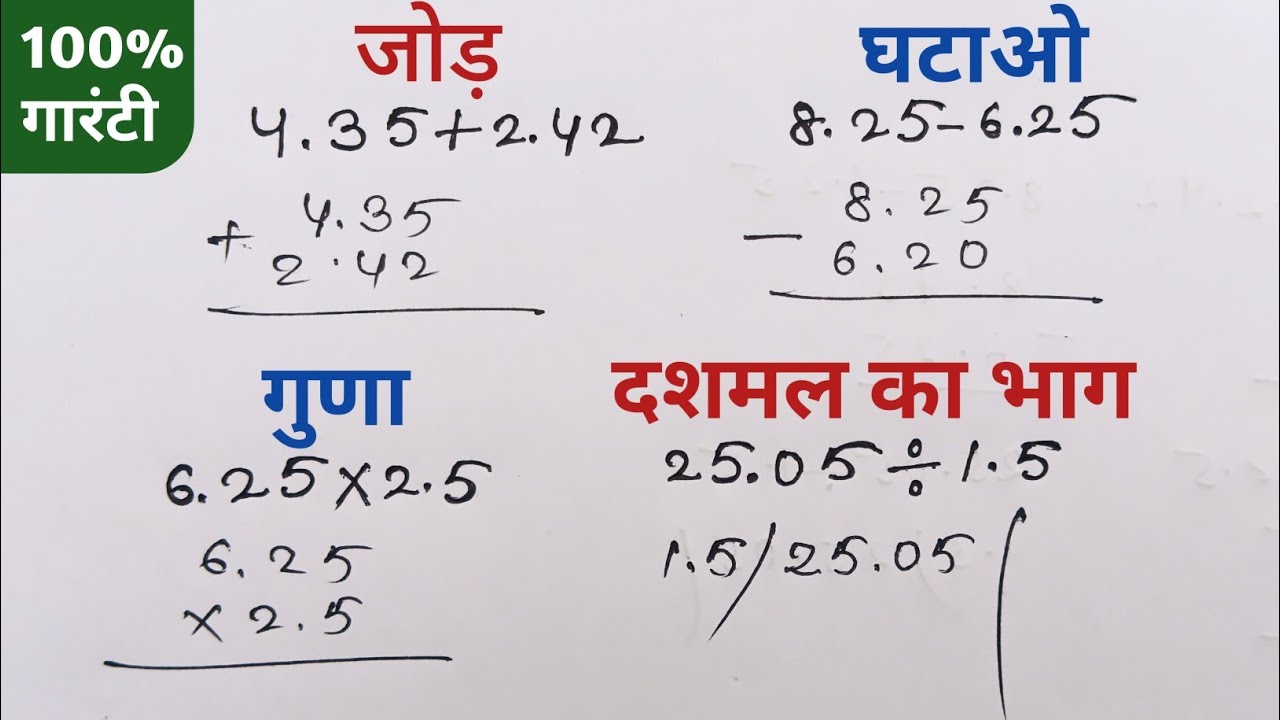 100%
गारंटी
जोड़
4.35+2.42
4.35
+ 2.42
घटाओ
8.25-6.25
8.25
- 6.20
गुणा
6.25×2.5
6.25
×2.5
दशमल का भाग
25.05÷1.5
1.5/25.05(